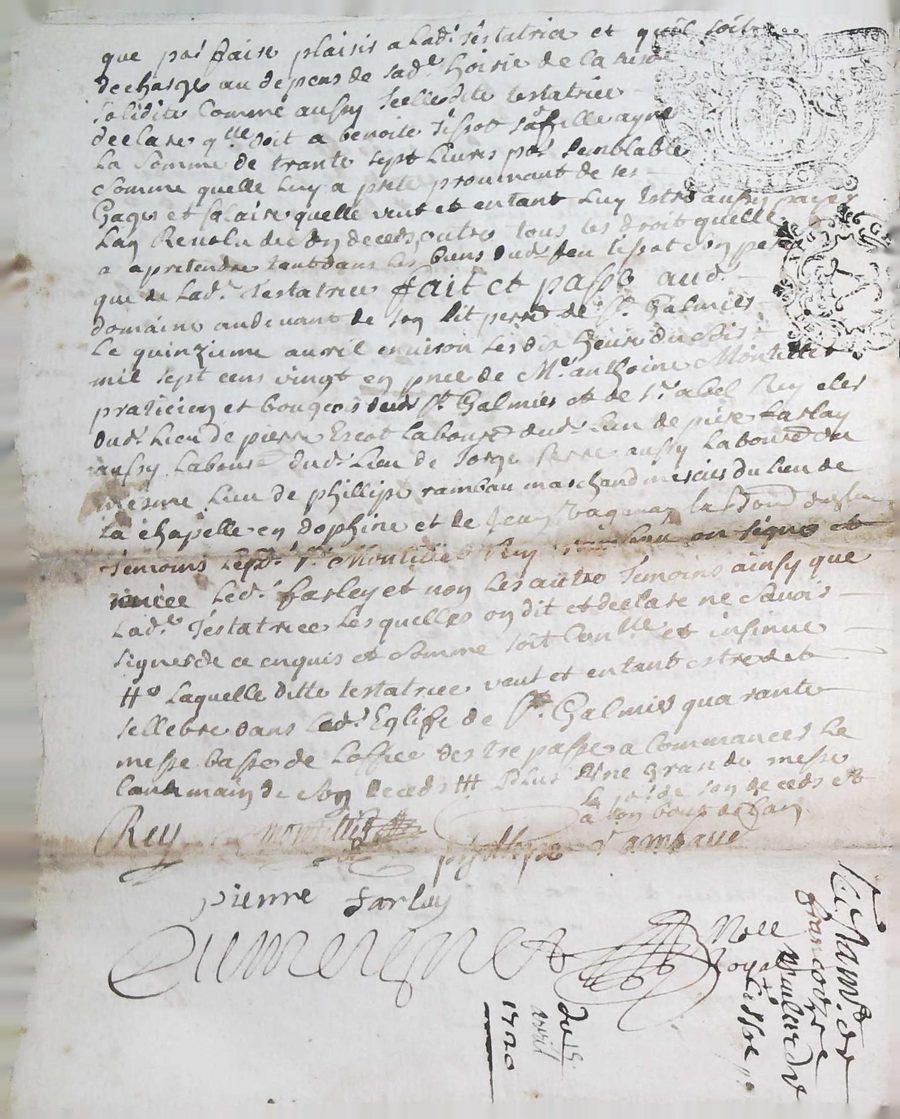 que por faire plaisir a lad. testatrice et qu'il soit
decharge au depens de sad. hoirie de la susd.
solidite Comme aussy Icelle dite testatrice
declare q.lle doit a benoite tissot sa fille ayne
La Somme de trante sept Livres por semblable
Somme quelle Luy a prete prouenant de ses
Gages et salaire quelle veut et entant Luy estre aussy payer
Lan Revolu du dy deceds outre tous les droit quelle
a a pretendre tant dans les biens dud. feu tissot son pere
que de Lad. Testatrice fait et passe aud.
domaine audevant de son lit perré de St. Galmier
Le quinzieme avril environ les dix heure du
mil sept cens vingt en pnce de Me. anthoine Montellier
praticien et bourgois dud. St. Galmier et de Sr. abel Rey clerc
dud. Lieu de pierre Escot Laboure dud. Lieu de piere farlay
aussy Laboure dud. Lieu de Jorge aussy Laboure du
mesme Lieu de phillipe rambau marchand mercier du Lieu de
La chapelle en dophine et de Jean
temoins Lesd. Sr. Montellier Rey on signe et
Led. farley et non les autre temoins ainsy que
Lad. Testatrice Lesquelles on dit et declare ne savoir
signer de ce enquis et somme soit Conlle et insinue
Laquelle ditte testatrice veut et entant estre dit et
sellebre dans Lad. Eglise de St. Galmier quarante
messe basse de Loffice des trepasse a Commancer Le
Landemain de son deceds Plus Une grande messe
Le jour de son deceds et
a son bout de Lan
Rey montellier
phillipe rambaud
pierre farlay
Dumeignet
Notte
Royal
Testam.t de
francoize
veuve
tissot
du 15
avril
1720